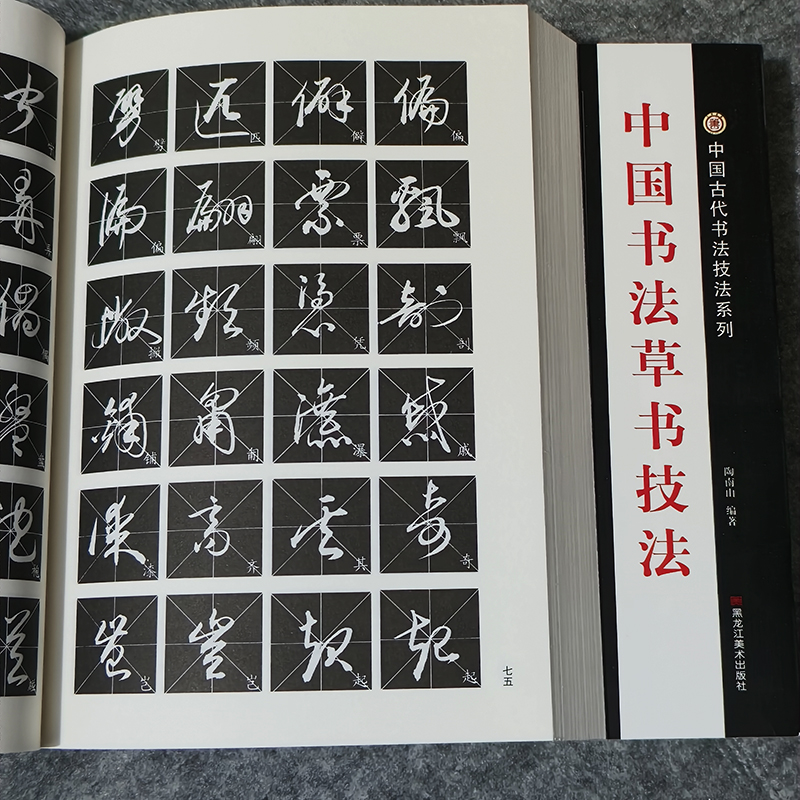 劈 匹 僻 偏
偏 翩 票 飘
频 凭 剖
铺 瀑 戚
漆 齐 其 奇
岂 岂 起 起
七五
中国古代书法技法系列
中国书法草书技法
陶南山 编著
黑龙江美术出版社